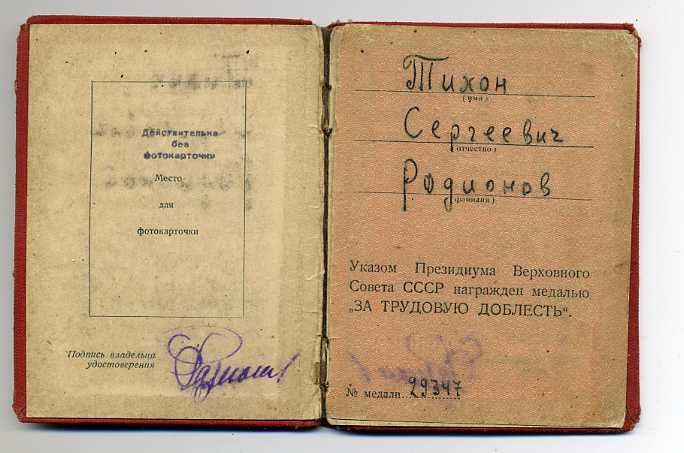 Действительна
без
фотокарточки
Место
для
фотокарточки
Подпись владельца
удостоверения
Тихон
(имя)
Сергеевич
(отчество)
Родионов
(фамилия)
Указом Президиума Верховного
Совета СССР награжден медалью
„ЗА ТРУДОВУЮ ДОБЛЕСТЬ“.
№ медали 29347